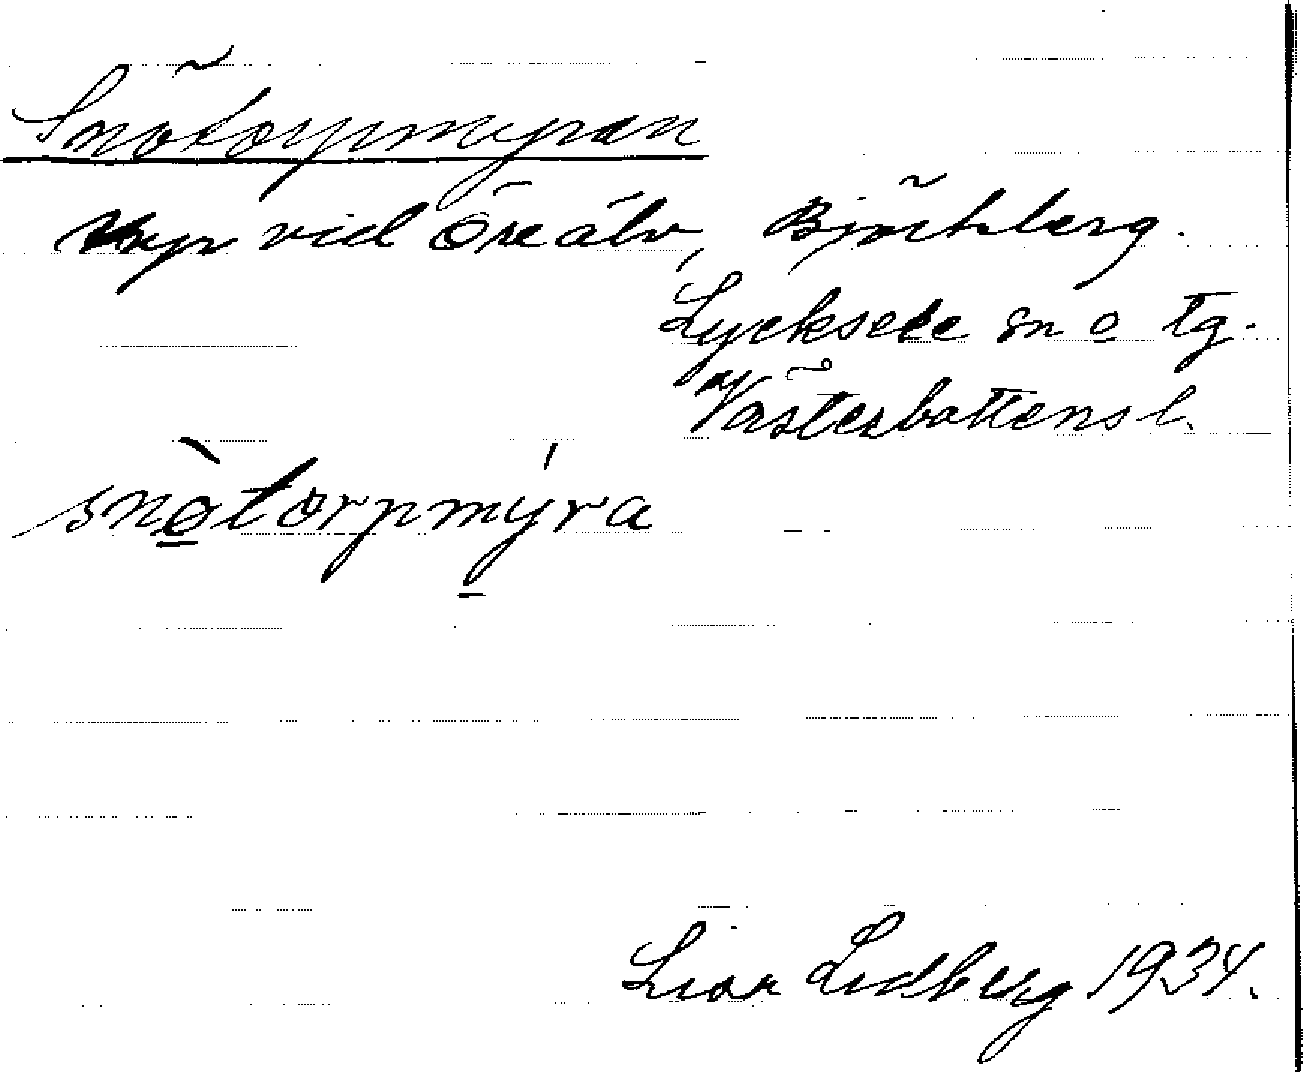 Snötorpmyran
Myr vid Öreälv, Björkberg.
Lycksele sn o tg.
Västerbottens l.
snòtorpmýra
Lidberg 1934.